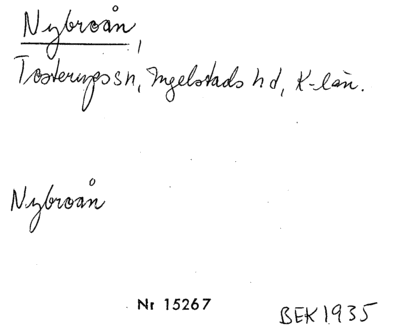 Nybroån,
Tosterups sn, Ingelstads hd, K-län.
Nybroån
Nr 15267
BEK 1935